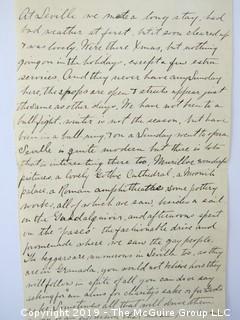 At Seville we made a long stay, had
bad weather at first, but it soon cleared up
& was lovely. Were there Xmas, but nothing
going on in the holidays except a few extra
services. And they never have any Sunday
here, the shops are open & streets appear just
the same as other days. We have not been to a
bull fight, winter is not the season, but have
been in a bull ring & on a Sunday went to opera
Seville is quite modern but there is lots
that is interesting there too, Murillo's wonderful
pictures, a lovely Gothic Cathedral, a Moorish
palace, a Roman amphitheatre some pottery
works, all of which we saw besides a sail
on the Guadalquivir, and afternoons spent
on the "paseo" the fashionable drive and
promenade where we saw the gay people.
The beggars are numerous in Seville too, as they
are in Granada, you would not believe how they
will follow in spite of all you can do or say
asking for an alms for charity's sake or for God's
all that will drive them
Copyright 2019 - Probex.com, LLC